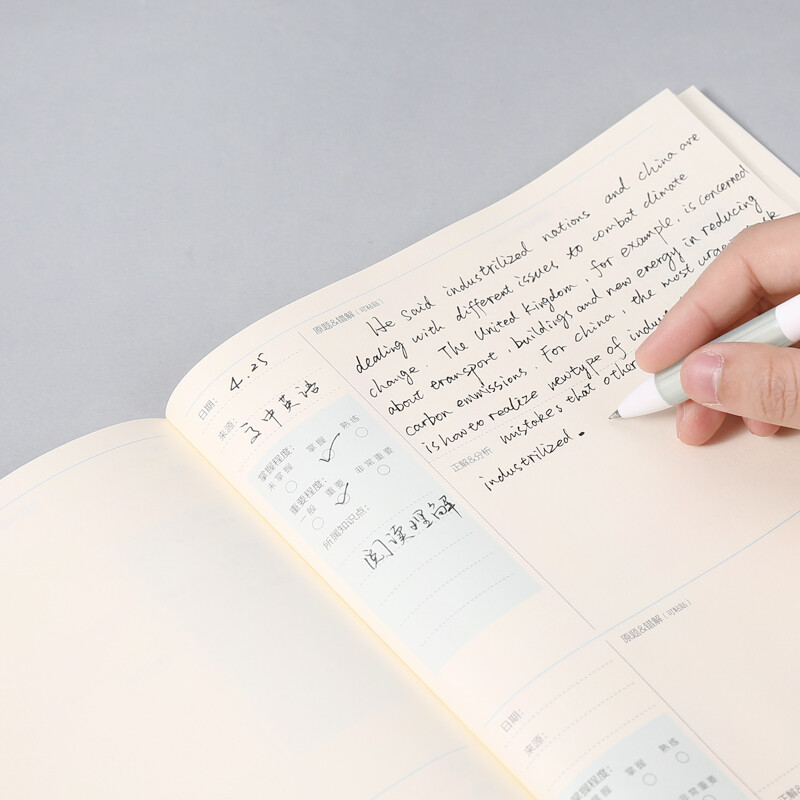 原题&错解（可粘贴）
He said industrilized nations and china are
dealing with different issues to combat climate
change. The United Kingdom, for example, is concerned
about transport, buildings and new energy in reducing
carbon emmissions. For china, the most
is how to realize newtype of
mistakes that other
industrilized.
日期: 4.25
来源: 高中英语
掌握程度:
未掌握 掌握 熟练
重要程度:
一般 重要 非常重要
所属知识点:
阅读理解
正解&分析
原题&错解（可粘贴）
日期:
来源:
掌握程度:
掌握 熟练